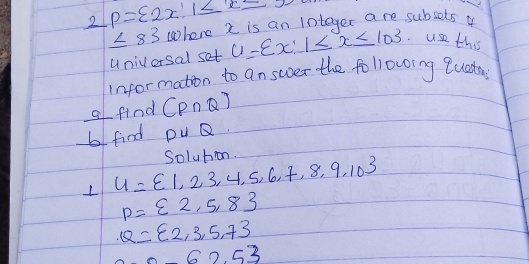 2 P={2x: 1≤
≤ 83 where x is an integer are subsets of
universal set U={x: 1≤x≤103. use this
information to answer the following Question:
a find (PnQ)
b find PuQ.
Solution.
1 U={1,2 3,4,5,6,7,8,9,103
P={2,5,83
Q={2,3,5,73
{2,53